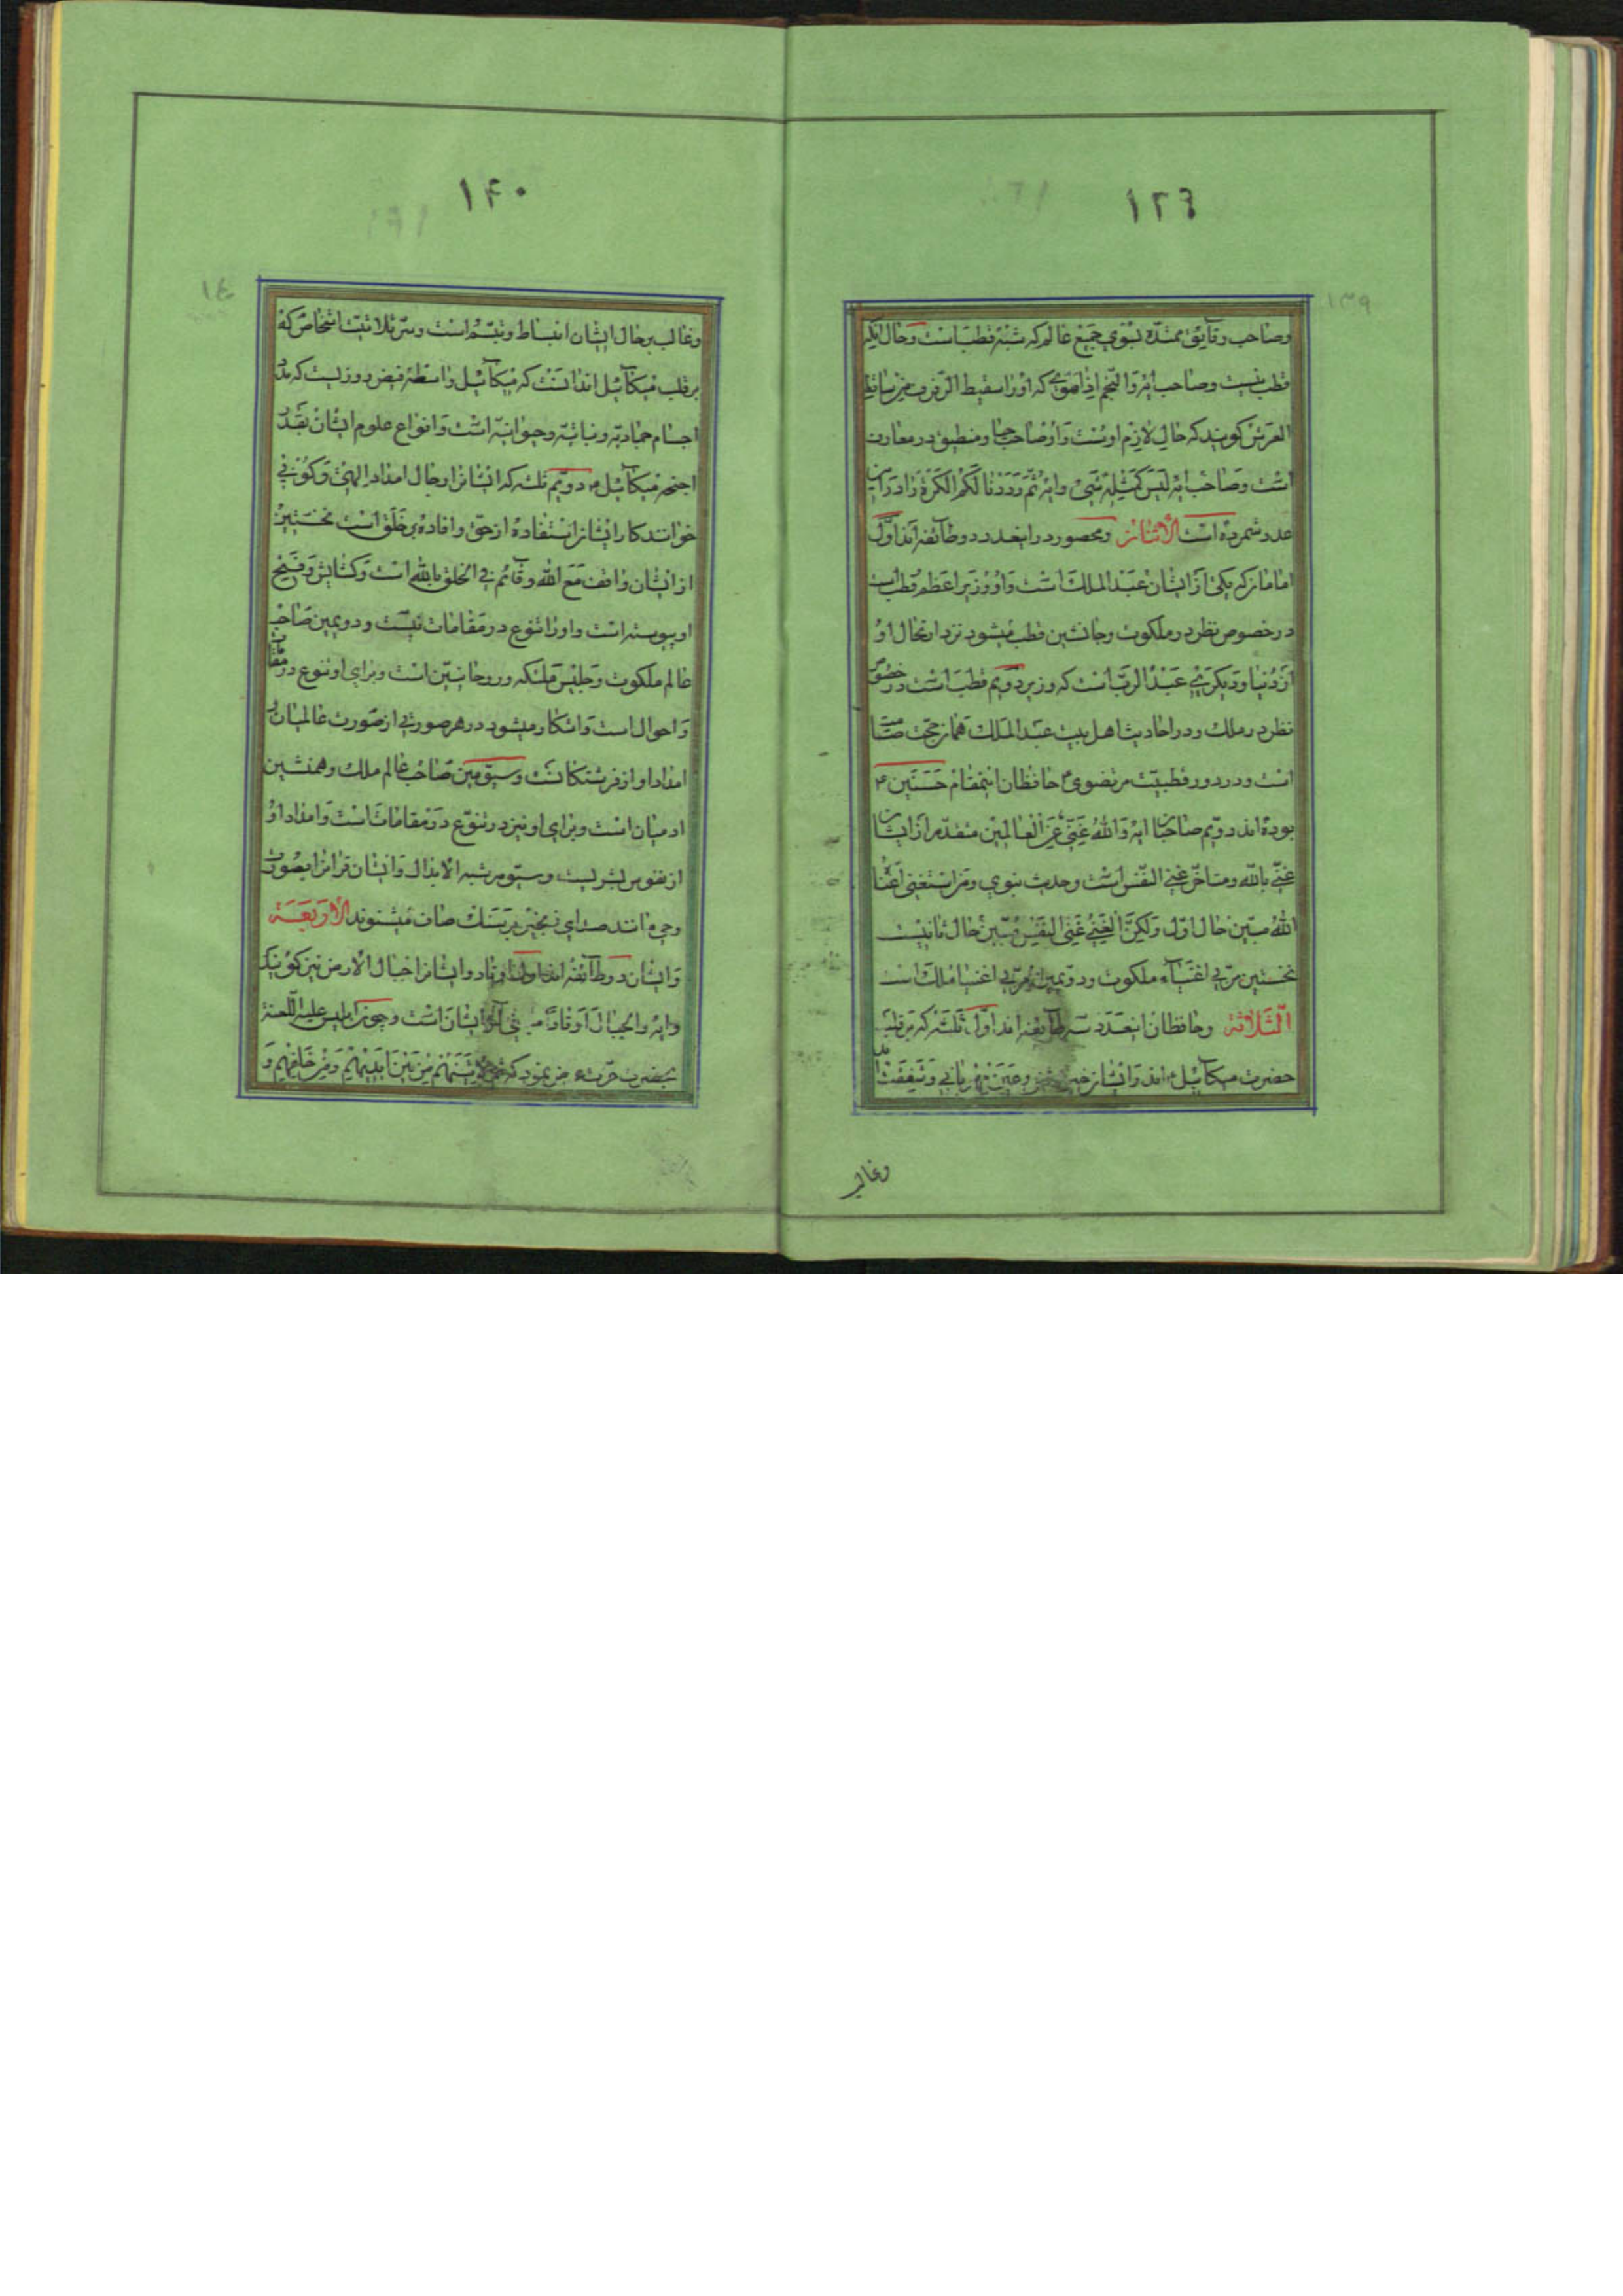 ١٣٩
وصاحب رقایق ممتدّه بسوی جمیع عالم که شبه قطب است وحال آنکه
قطب نیست وصاحب ایهٔ والنّجم اذا هوی که اورا سقیط الرّفرف بن ساقط
العرش گویند که حال لازم اوست واوصاحب حیا ومنطبق در معارف
است وصاحب ایهٔ لیس کمثله شیئ وایهٔ ثمّ رددنا لکم الکرّة را در این
عدد شمرده است الأثنان ومحصور در اینعدد دو طائفه اند اوّل
امامان که یکی از ایشان عبد الملک است واو وزیر اعظم قطب
در خصوص نظر در ملکوت وجانشین قطب میشود نزد ارتحال او
از دنیا ودیگری عبد الربّ است که وزیر دویّم قطب است در خصوص
نظر در ملک ودر احادیث اهل بیت عبد الملک همان حجّت صامت
است ودر دور قطبیّت مرتضوی حافظان اینمقام حسنین ع
بوده اند دویّم صاحبان ایهٔ والله غنیّ عن العالمین متقدّم از ایشان
غنیّ بالله ومتاخّر غنی النّفس است وحدیث نبوی ومن استغنی اغناه
الله مبیّن حال اوّل ولکنّ الغنی غنی النّفس مبیّن حال ثانیست
نخستین مربّی اغنیاء ملکوت ودویمین مربّی اغنیا ملک است
الثّلاثة وحافظان اینعدد سه طایفه اند اوّل ثلثه که بر قلب
حضرت میکائیل ع اند وایشان خیر محض وعین مهربانی وشفقت اند
وغالب
١۴٠
وغالب بر حال ایشان انبساط وتبسّم است وسرّ ثلاثیّت اشخاص که
بر قلب میکائیل اند انست که میکائیل واسطهٔ فیض روزیست که مدد
اجسام جمادیّه ونباتیّه وحیوانیّه است وانواع علوم ایشان بقدر
اجنحهٔ میکائیل ع دویّم ثلثه که ایشانرا رجال امداد الهی وکونی
خوانند کار ایشان استفاده از حقّ وافاده بر خلق است نخستین
از ایشان واقف مع الله وقائم فی الخلق بالله است وکشایش وفتح
او پیوسته است واورا تنوع در مقامات نیست ودویمین صاحب
عالم ملکوت وجلیس ملئکه وروحانیّین است وبرای او تنوع در مقامات
واحوال است واشکار میشود در هر صورتی از صورت عالمیان
امداد او از فرشتکانست وسیّومین صاحب عالم ملک وهمنشین
ادمیان است وبرای او نیز در تنوّع در مقامات است وامداد او
از نفوس بشریست وسیّوم رتبه الابدال وایشان قرانرا بصورت
وحی مانند صدای زنجیر بر سنک صاف میشنوند الأربعة
وایشان دو طائفه اند اول اوتاد وایشانرا جبال الارض نیز گویند
وایهٔ والجبال اوتادًا مبنی از ایشان است وچون ابلیس علیه اللّعنة
بحضرت عزّت عرض نمود که ثمّ لأتینّهم من بین ایدیهم ومن خلفهم و